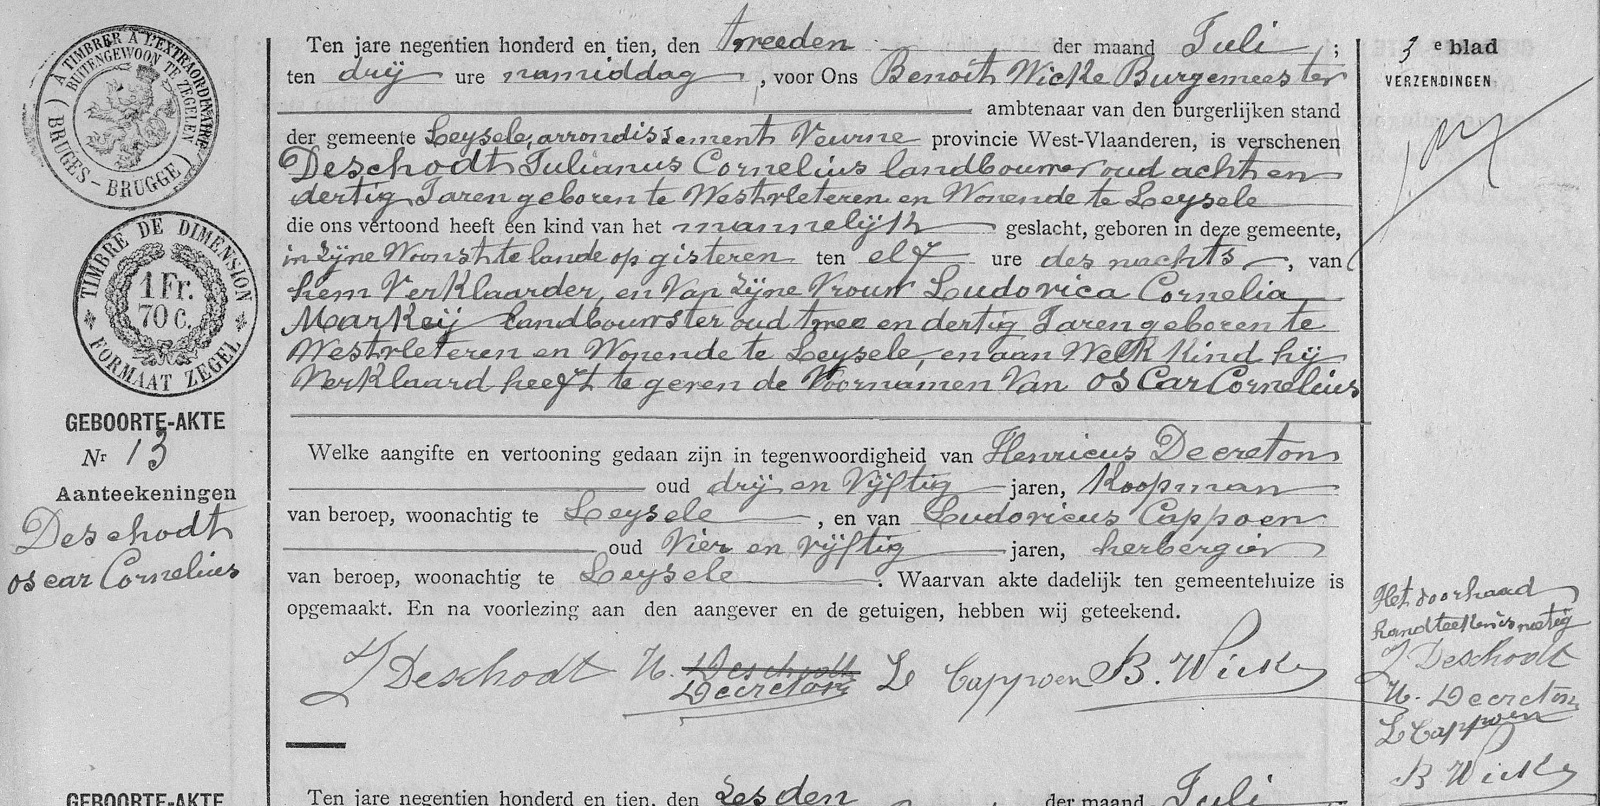 À TIMBRER À L'EXTRAORDINAIRE
BUITENGEWOON TE ZEGELEN
( BRUGES - BRUGGE )
TIMBRE DE DIMENSION
1 Fr.
70 C.
FORMAAT ZEGEL
GEBOORTE-AKTE
Nr 13
Aanteekeningen
Deschodt
oscar Cornelius
Ten jare negentien honderd en tien, den tweeden der maand Juli ;
ten drij ure namiddag , voor Ons Benoit Wicke Burgemeester
ambtenaar van den burgerlijken stand
der gemeente Leysele, arrondissement Veurne provincie West-Vlaanderen, is verschenen
Deschodt Julianus Cornelius landbouwer oud acht en
dertig Jaren geboren te Westvleteren en Wonende te Leysele
die ons vertoond heeft een kind van het mannelijk geslacht, geboren in deze gemeente,
in zijne Woonst te lande op gisteren ten elf ure des nachts , van
hem Verklaarder, en Van zijne Vrouw Ludovica Cornelia
Markeij landbouwster oud twee en dertig Jaren geboren te
Westvleteren en Wonende te Leysele, en aan Welk Kind hij
Verklaard heeft te geven de Voornamen Van oscar Cornelius
Welke aangifte en vertooning gedaan zijn in tegenwoordigheid van Henricus Decreton
oud drij en Vijftig jaren, Koopman
van beroep, woonachtig te Leysele , en van Ludovicus Cappoen
oud Vier en vijftig jaren, herbergier
van beroep, woonachtig te Leysele . Waarvan akte dadelijk ten gemeentehuize is
opgemaakt. En na voorlezing aan den aangever en de getuigen, hebben wij geteekend.
J Deschodt H. Deschodt Decreton L Cappoen B. Wicke
3 e blad
VERZENDINGEN
Het doorhaad
handteekenis nietig
J Deschodt
H. Decreton
L Cappoen
B Wicke
GEBOORTE-AKTE
Ten jare negentien honderd en tien, den zesden der maand Juli